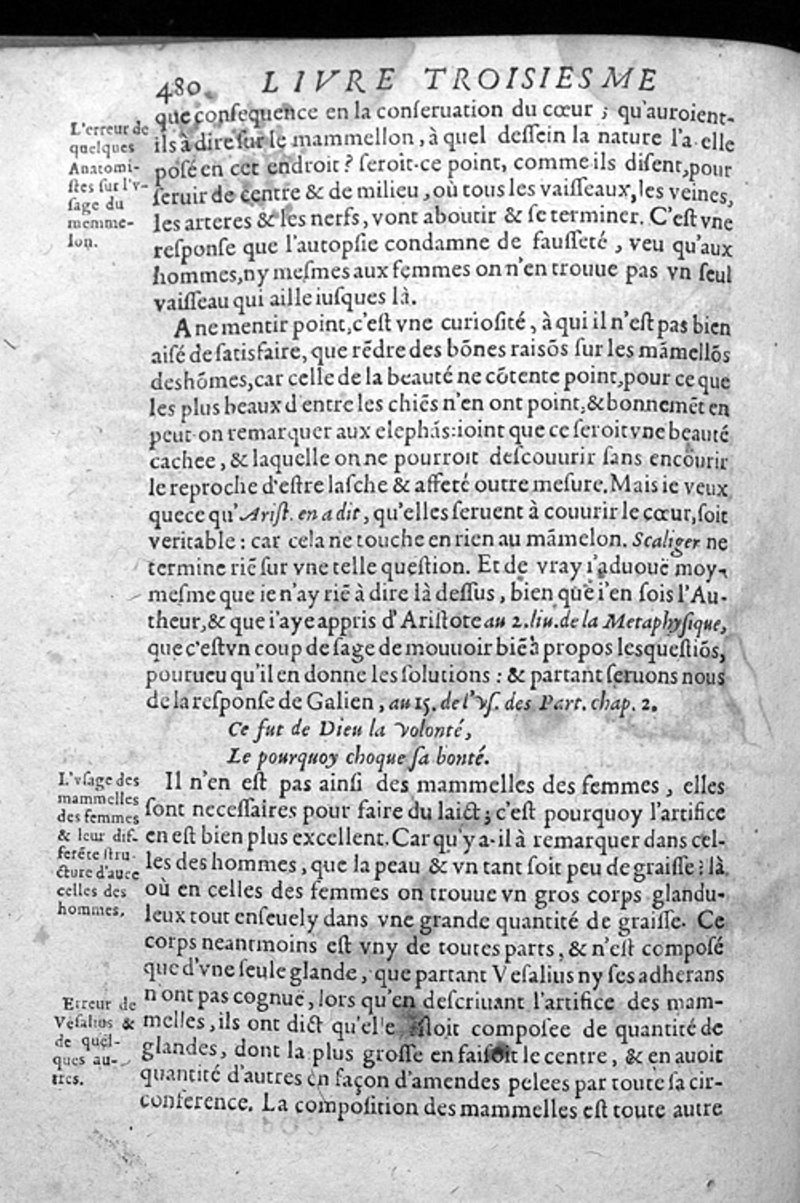 480. LIVRE TROISIESME
que conſequence en la conſeruation du cœur ; qu'auroient-
ils à dire ſur le mammellon, à quel deſſein la nature l'a elle
poſé en cet endroit ? ſeroit-ce point, comme ils diſent, pour
ſeruir de centre & de milieu, où tous les vaiſſeaux, les veines,
les arteres & les nerfs, vont aboutir & ſe terminer. C'eſt vne
reſponſe que l'autopſie condamne de fauſſeté, veu qu'aux
hommes, ny meſmes aux femmes on n'en trouue pas vn ſeul
vaiſſeau qui aille iuſques là.
L'erreur de
quelques
Anatomi-
ſtes ſur l'v-
ſage du
memme-
lon.
A ne mentir point, c'eſt vne curioſité, à qui il n'eſt pas bien
aiſé de ſatisfaire, que rẽdre des bõnes raisõs ſur les mãmellõs
des hõmes, car celle de la beauté ne cõtente point, pour ce que
les plus beaux d'entre les chiẽs n'en ont point, & bonnemẽt en
peut-on remarquer aux elephãs: ioint que ce ſeroit vne beauté
cachee, & laquelle on ne pourroit deſcouurir ſans encourir
le reproche d'eſtre laſche & affeté outre meſure. Mais ie veux
que ce qu'Ariſt. en a dit, qu'elles ſeruent à couurir le cœur, ſoit
veritable : car cela ne touche en rien au mãmelon. Scaliger ne
termine riẽ ſur vne telle queſtion. Et de vray i'aduouë moy-
meſme que ie n'ay riẽ à dire là deſſus, bien que i'en ſois l'Au-
theur, & que i'aye appris d'Ariſtote au 2. liu. de la Metaphyſique,
que c'eſt vn coup de ſage de mouuoir biẽ à propos les queſtiõs,
pourueu qu'il en donne les ſolutions : & partant ſeruons nous
de la reſponſe de Galien, au 15. de l'vſ. des Part. chap. 2.
Ce fut de Dieu la volonté,
Le pourquoy choque ſa bonté.
Il n'en eſt pas ainſi des mammelles des femmes, elles
ſont neceſſaires pour faire du laict ; c'eſt pourquoy l'artifice
en eſt bien plus excellent. Car qu'y a-il à remarquer dans cel-
les des hommes, que la peau & vn tant ſoit peu de graiſſe : là
où en celles des femmes on trouue vn gros corps glandu-
leux tout enſeuely dans vne grande quantité de graiſſe. Ce
corps neantmoins eſt vny de toutes parts, & n'eſt compoſé
que d'vne ſeule glande, que partant Veſalius ny ſes adherans
n'ont pas cognuë, lors qu'en deſcriuant l'artifice des mam-
melles, ils ont dict qu'elle eſtoit compoſee de quantité de
glandes, dont la plus groſſe en faiſoit le centre, & en auoit
quantité d'autres en façon d'amendes pelees par toute ſa cir-
conference. La compoſition des mammelles eſt toute autre
L'vſage des
mammelles
des femmes
& leur dif-
ferẽte ſtru-
cture d'auec
celles des
hommes.
Erreur de
Veſalius &
de quel-
ques au-
tres.